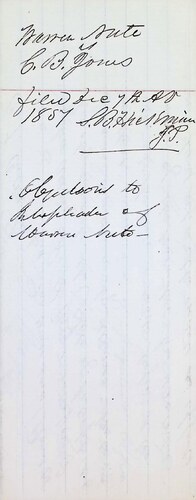 Warren Nute
v
C. B. Jones
filed Dec 7th AD
1857 S. B. Hickman
J.P.
Objections to
Interpleader of
Warren Nute